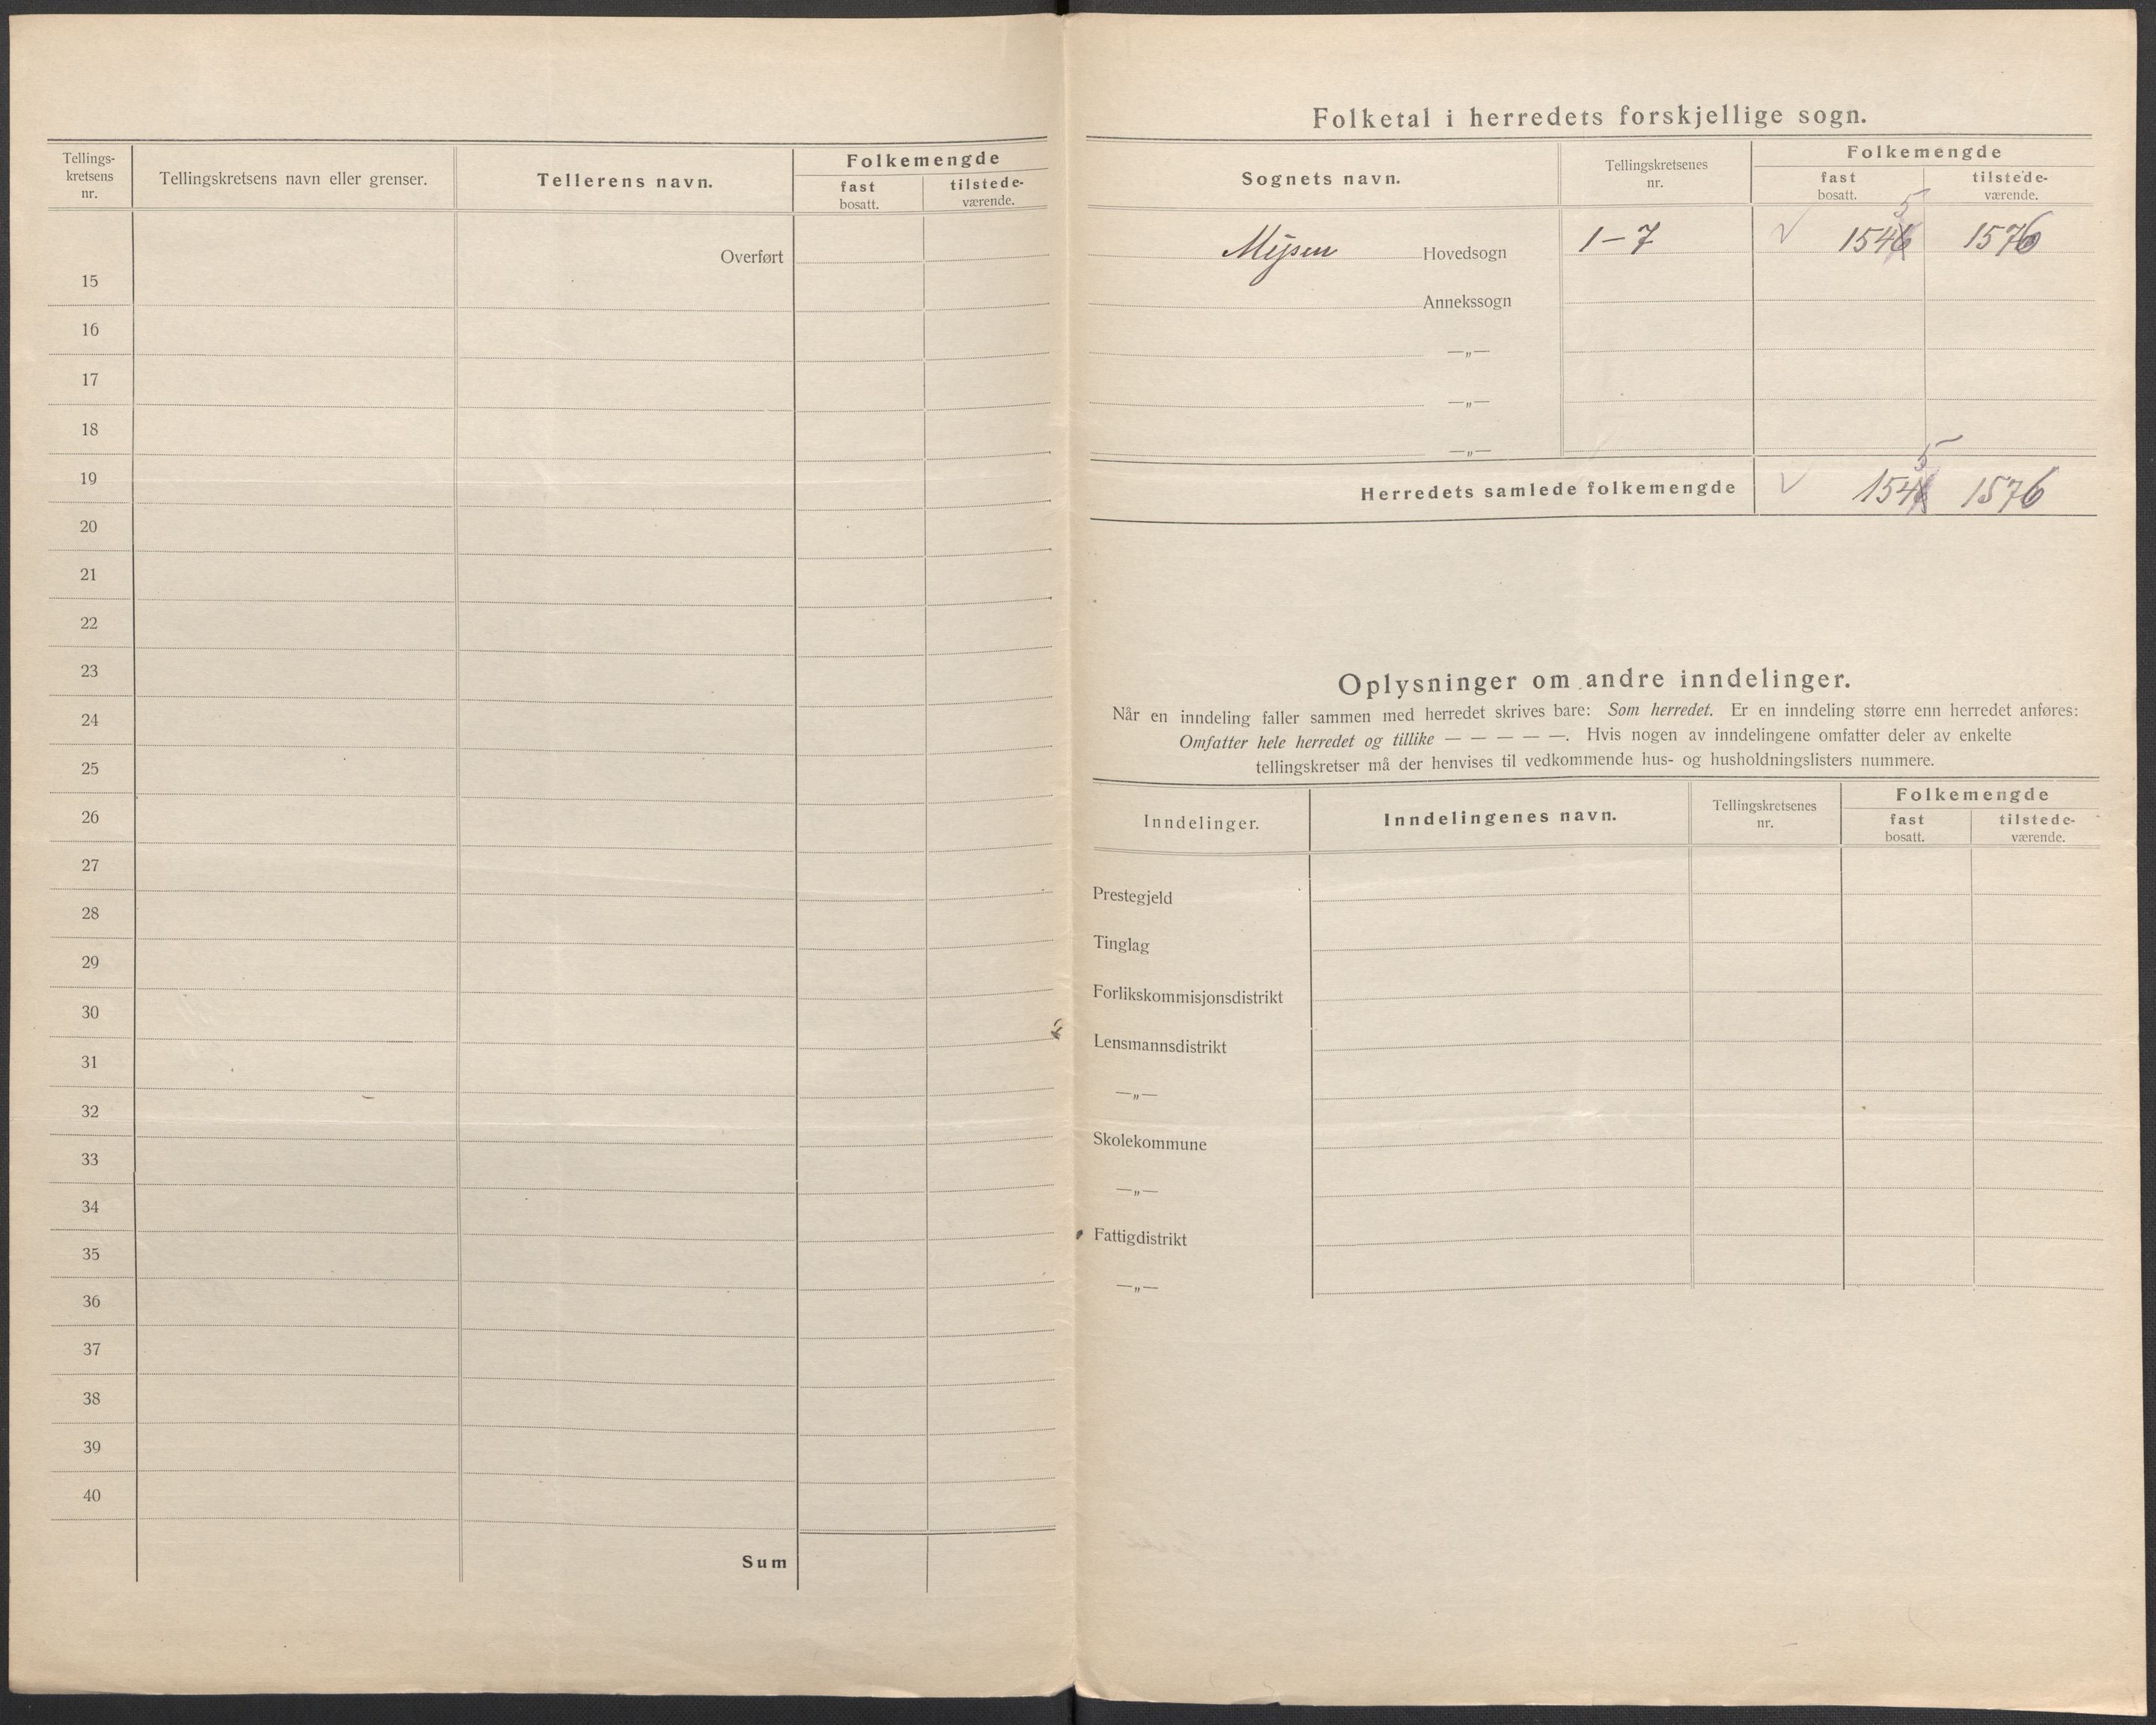 Tellings-
kretsens
nr.
Tellingskretsens navn eller grenser.
Tellerens navn.
Folkemengde
fast
bosatt.
tilstede-
værende.
Overført
15
16
17
18
19
20
21
22
23
24
25
26
27
28
29
30
31
32
33
34
35
36
37
38
39
40
Sum
Folketal i herredets forskjellige sogn.
Sognets navn.
Tellingskretsenes
nr.
Folkemengde
fast
bosatt.
tilstede-
værende.
5
Mysen Hovedsogn 1-7 √ 1546 1576
Annekssogn
—„—
—„—
—„—
5
Herredets samlede folkemengde √ 1546 1576
Oplysninger om andre inndelinger.
Når en inndeling faller sammen med herredet skrives bare: Som herredet. Er en inndeling større enn herredet anføres:
Omfatter hele herredet og tillike — — — — —. Hvis nogen av inndelingene omfatter deler av enkelte
tellingskretser må der henvises til vedkommende hus- og husholdningslisters nummere.
Inndelinger.
Inndelingenes navn.
Tellingskretsenes
nr.
Folkemengde
fast
bosatt.
tilstede-
værende.
Prestegjeld
Tinglag
Forlikskommisjonsdistrikt
Lensmannsdistrikt
—„—
Skolekommune
—„—
Fattigdistrikt
—„—